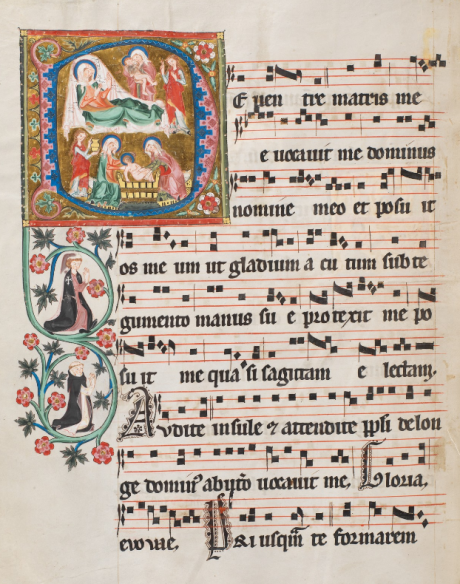 De ven tre matris me
e uocauit me dominus
nomine meo et posu it
os me um ut gladium a cu tum sub te
gumento manus su e protexit me po
su it me qua si sagittam e lectam.
Audite insule ⁊ attendite ppli de lon
ge domin⁹ ab ut̾o uocauit me, Gloria,
evovae, Priusqm̄ te formarem